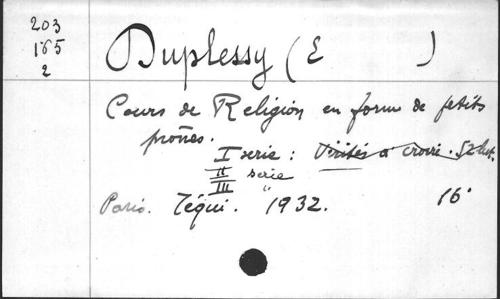 203
165
2
Duplessy (E )
Cours de Religion en forme de petits
prônes.
I serie : Vérités à croire. 52 
II serie
III "
Paris. Téqui. 1932. 16°